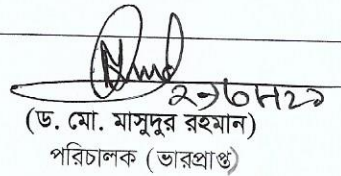 (ড. মো. মাসুদুর রহমান)
পরিচালক (ভারপ্রাপ্ত)